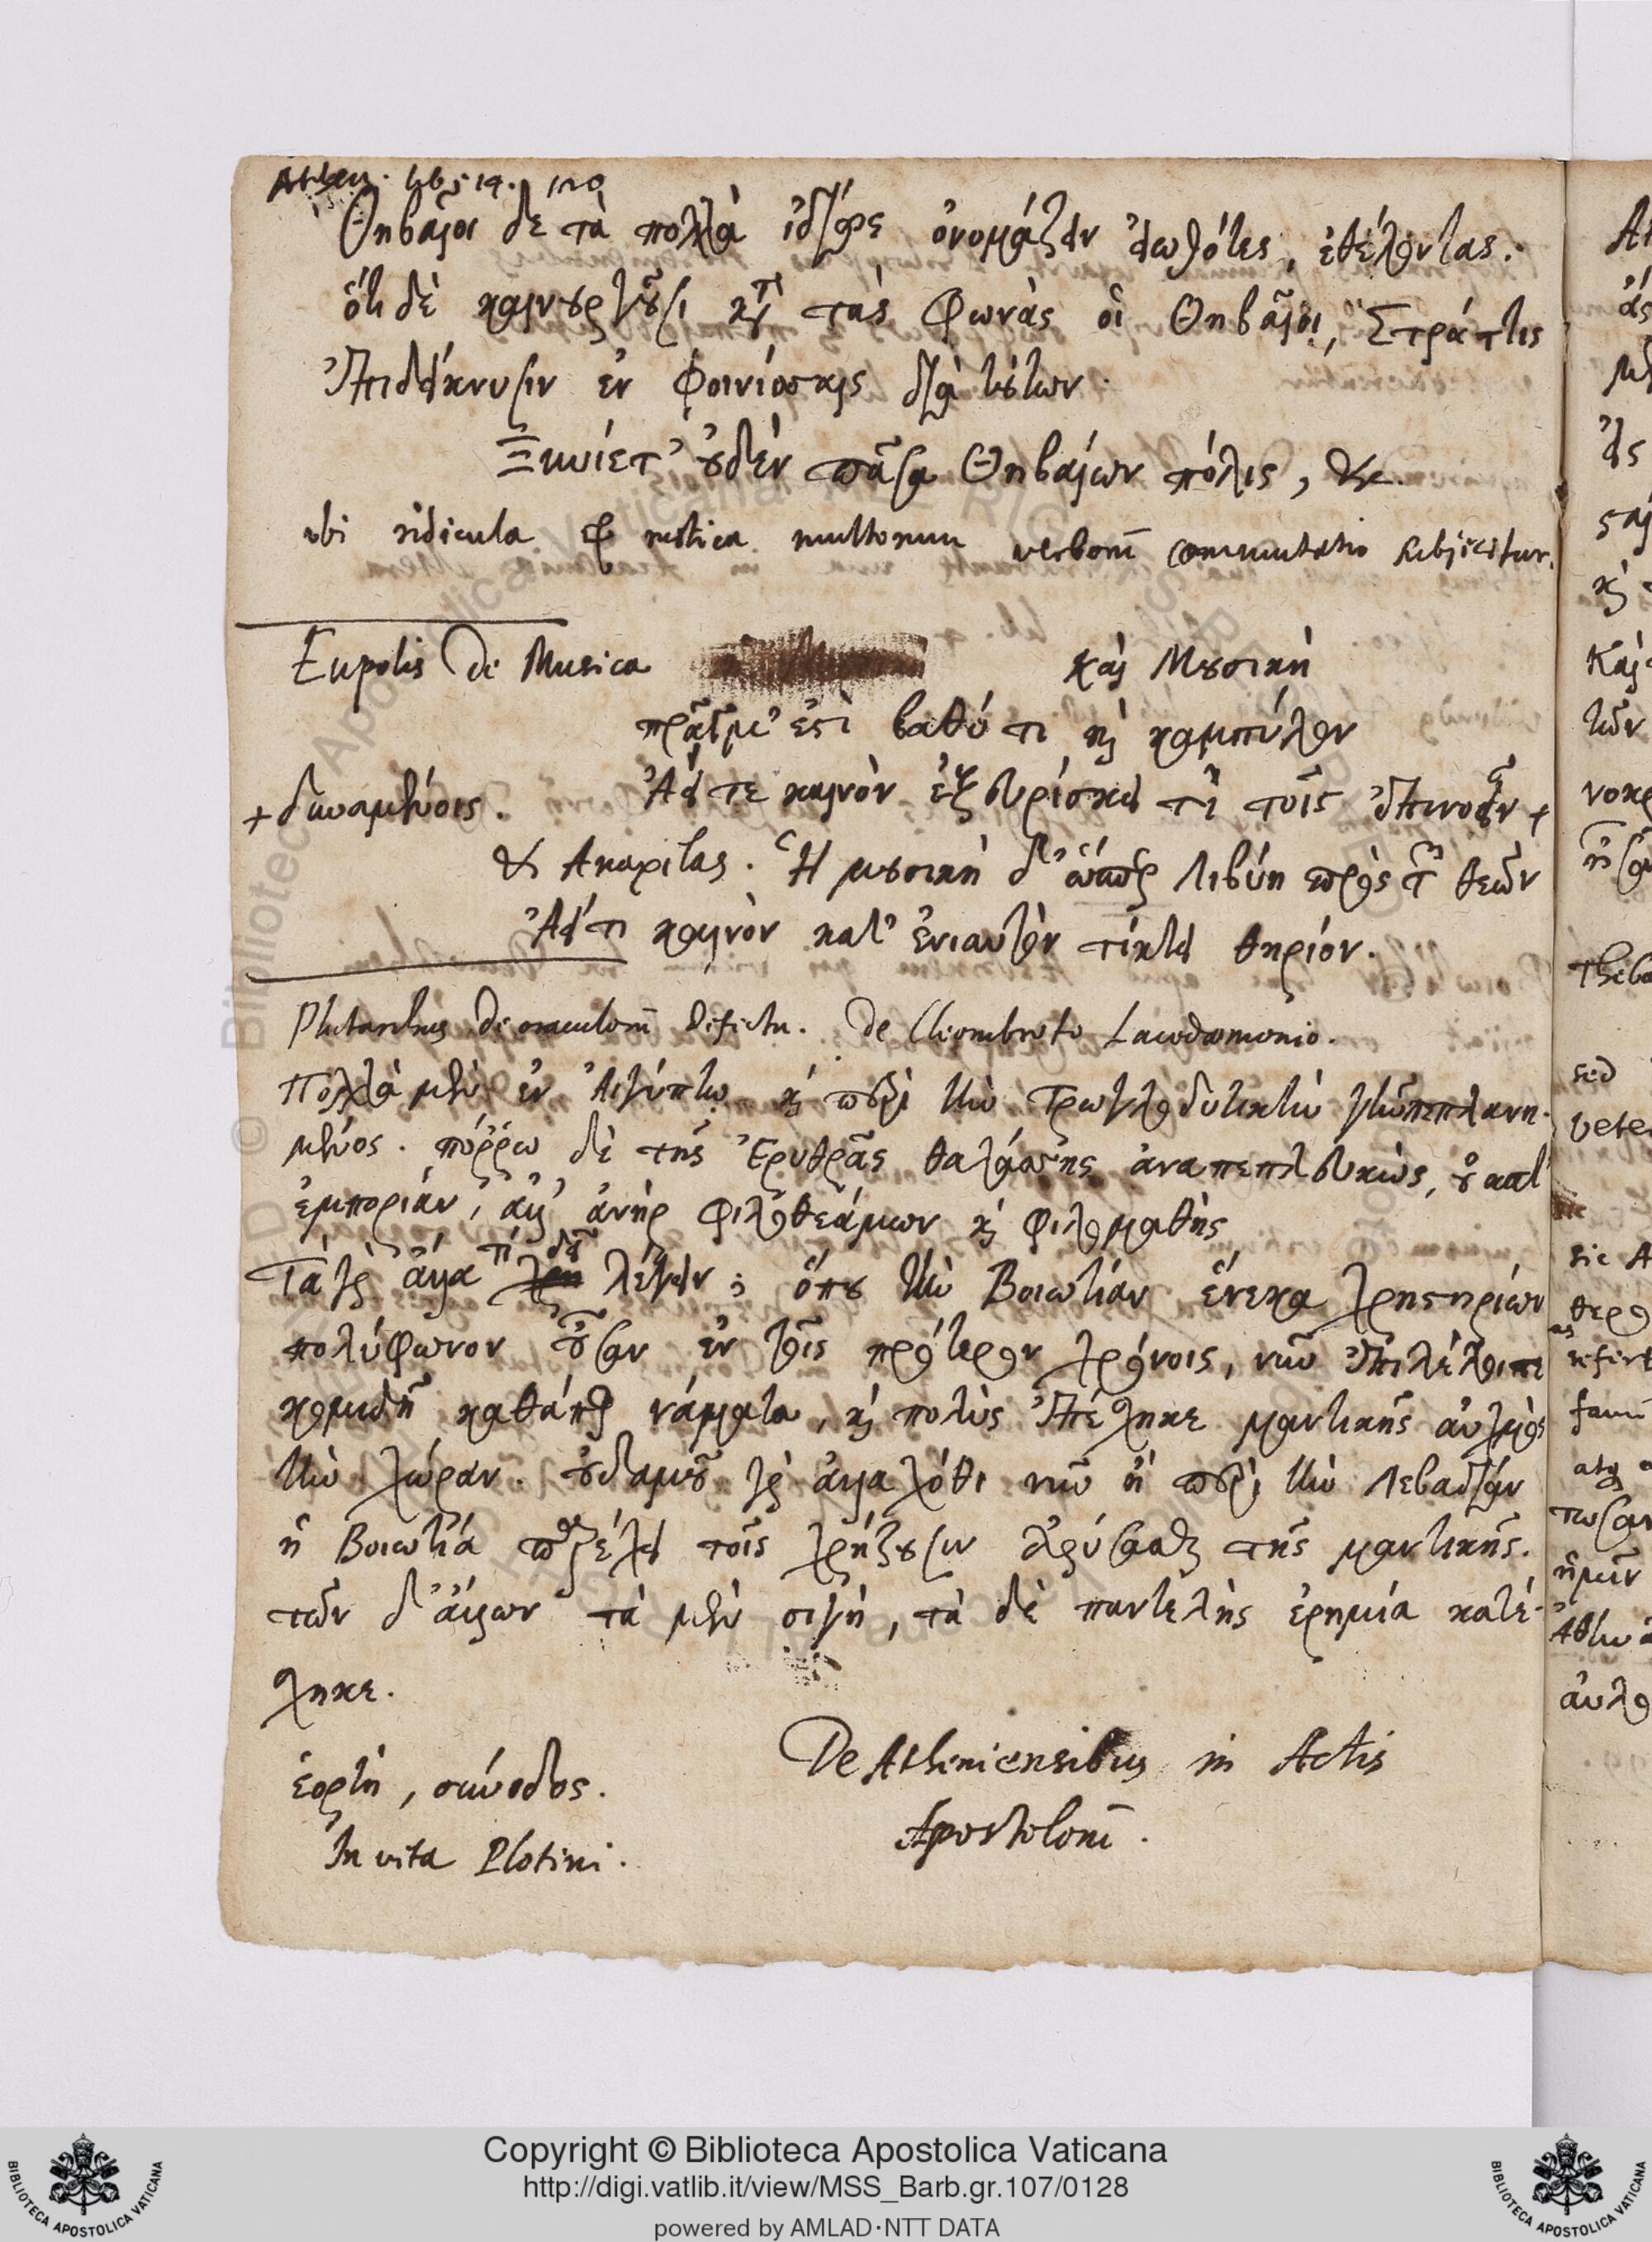 Athen. lib. 14.
Θηβαῖοι δὲ τὰ πολλὰ ἰδίως ὀνομάζειν εἰωθότες, ἐθέλοντας.
ὅτι δὲ καινουργοῦσι κατὰ τὰς φωνὰς οἱ Θηβαῖοι, Στράττις
ἐπιδείκνυσιν ἐν Φοινίσσαις διὰ τούτων.
Ξυνίετ' οὐδὲν πᾶσα Θηβαίων πόλις, &c.
ubi ridicula et rustica multorum verborum commutatio subjicitur.
Eupolis de Musica καὶ Μουσικὴ
πρᾶγμ' ἐστὶ βαθύ τι καὶ καμπύλον
Ἀεί τε καινὸν ἐξευρίσκει τι τοῖς ἐπινοεῖν +
+ δυναμένοις.
& Anaxilas. Ἡ μουσικὴ δ' ὥσπερ Λιβύη πρὸς τῶν θεῶν
Ἀεί τι καινὸν κατ' ἐνιαυτὸν τίκτει θηρίον.
Plutarchus de oraculorum defectu. De Cleombroto Lacedæmonio.
Πολλὰ μὲν ἐν Αἰγύπτῳ καὶ περὶ τὴν Τρωγλοδυτικὴν γῆν πεπλανη-
μένος. πόῤῥω δὲ τῆς Ἐρυθρᾶς θαλάσσης ἀναπεπλευκὼς, οὐ κατ'
ἐμπορίαν, ἀλλ' ἀνὴρ φιλοθεάμων καὶ φιλομαθὴς
Τὰ γὰρ ἄλλα τί δεῖ λέγειν; ὅπου τὴν Βοιωτίαν ἕνεκα χρηστηρίων
πολύφωνον οὖσαν ἐν τοῖς πρότερον χρόνοις, νῦν ἐπιλέλοιπε
κομιδῇ καθάπερ νάματα, καὶ πολὺς ἐπέσχηκε μαντικῆς αὐχμὸς
τὴν χώραν. οὐδαμοῦ γὰρ ἀλλαχόθι νῦν ἢ περὶ τὴν Λεβαδίαν
ἡ Βοιωτία παρέχει τοῖς χρῄζουσιν ἀρύσασθαι τῆς μαντικῆς.
τῶν δ' ἄλλων τὰ μὲν σιγὴ, τὰ δὲ παντελὴς ἐρημία κατέ-
σχηκε.
ἑορτὴ, σύνοδος.
In vita Plotini.
De Atheniensibus in Actis
Apostolorum.
Copyright © Biblioteca Apostolica Vaticana
http://digi.vatlib.it/view/MSS_Barb.gr.107/0128
powered by AMLAD·NTT DATA